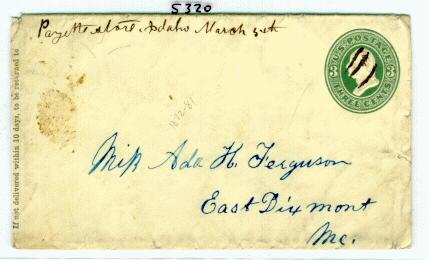 5320
Payette Store, Idaho March 5th
U.S. POSTAGE
3 3
THREE CENTS
If not delivered within 10 days, to be returned to
1882-87
Miss Ada H. Ferguson
East Dixmont
Me.